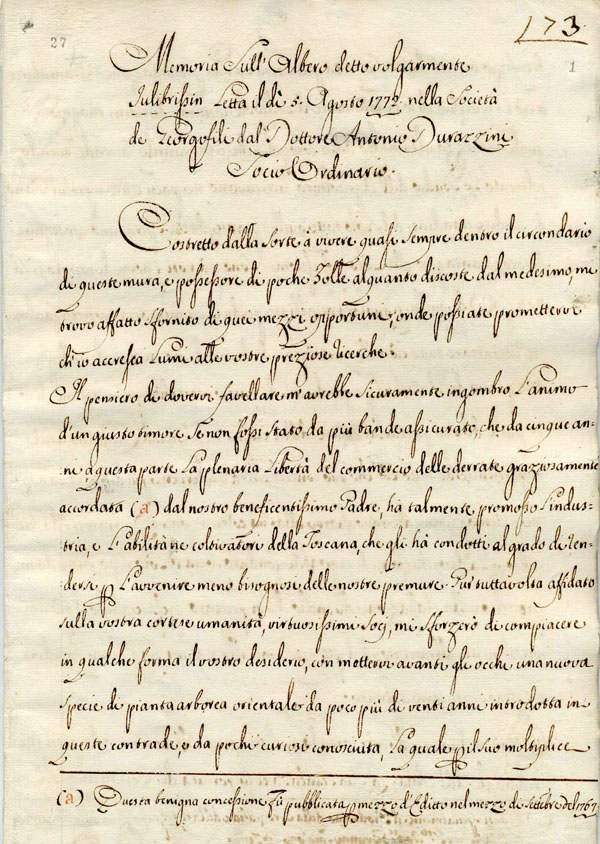 27
173
1
Memoria Sull' Albero detto volgarmente
Julibrissin Letta il dì 5. Agosto 1772. nella Società
de Georgofili dal Dottore Antonio Durazzini
Socio Ordinario.
Costretto dalla sorte a vivere quasi sempre dentro il circondario
di queste mura, e possessore di poche Zolle alquanto discoste dal medesimo, mi
trovo affatto sfornito di quei mezzi opportuni, onde possiate promettervi
ch'io accresca Lumi alle vostre preziose ricerche.
Il pensiero di dovervi favellare m'avrebbe sicuramente ingombro L'animo
d'un giusto timore se non fossi stato da più bande assicurato, che da cinque an-
ni a questa parte La plenaria Libertà del commercio delle derrate graziosamente
accordata (a) dal nostro beneficentissimo Padre, hà talmente promosso L'indus-
tria, e L'abilità ne coltivatori della Toscana, che gli hà condotti al grado di ren-
dersi L'avvenire meno bisognosi delle nostre premure. Pur tuttavolta affidato
sulla vostra cortese umanità, virtuosissimi Socj, mi sforzerò di compiacere
in qualche forma il vostro desiderio, con mettervi avanti gli occhi una nuova
specie di pianta arborea orientale da poco più di venti anni introdotta in
queste contrade, e da pochi curiosi conosciuta, La quale il suo moltiplice
(a) Questa benigna concessione fù pubblicata mezzo d'Editto nel mezzo di Settembre del 1767.